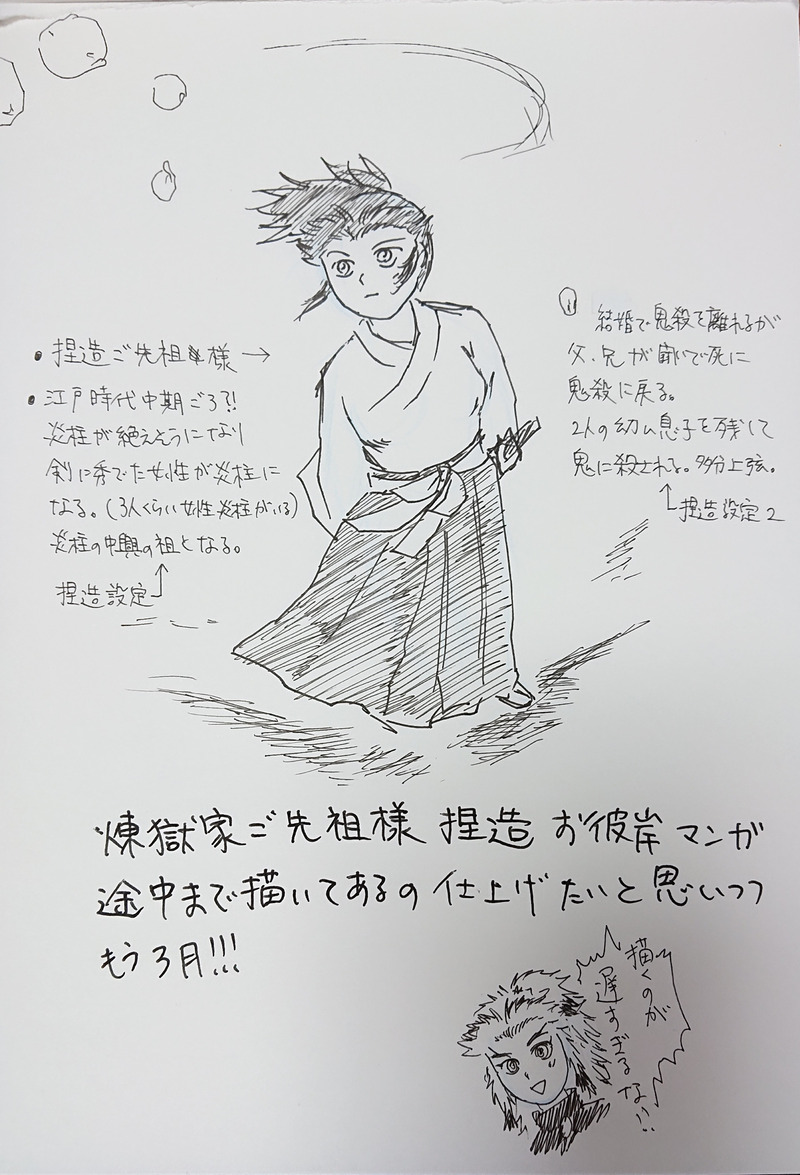 ・捏造ご先祖様→
・江戸時代中期ごろ?!
炎柱が絶えそうになり
剣に秀でた女性が炎柱に
なる。(3人くらい女性炎柱がいる)
炎柱の中興の祖となる。
捏造設定
結婚で鬼殺を離れるが
父、兄が 死に
鬼殺に戻る。
2人の幼い息子を残して
鬼に殺される。多分上弦。
捏造設定2
煉獄家ご先祖様 捏造 お彼岸マンガ
途中まで描いてあるの 仕上げたいと思いつつ
もう3月!!!
描くのが
遅すぎるな!!